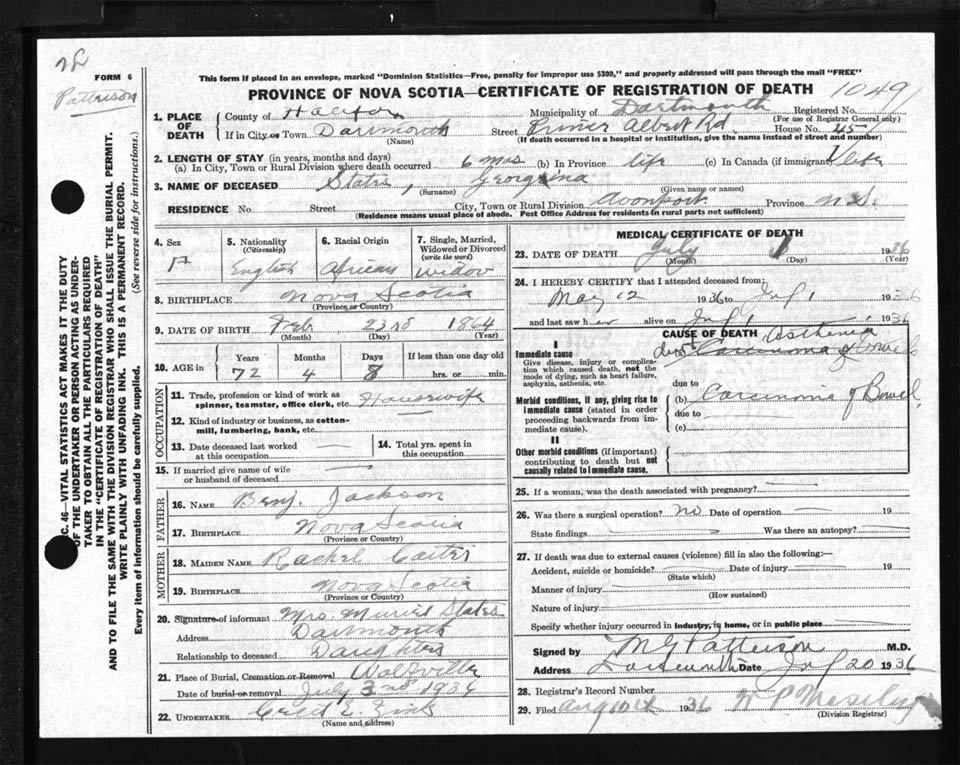 FORM 6
Pattrison
This form if placed in an envelope, marked "Dominion Statistics—Free, penalty for improper use $300," and properly addressed will pass through the mail "FREE"
PROVINCE OF NOVA SCOTIA—CERTIFICATE OF REGISTRATION OF DEATH 1049
C. 46—VITAL STATISTICS ACT MAKES IT THE DUTY
OF THE UNDERTAKER OR PERSON ACTING AS UNDER-
TAKER TO OBTAIN ALL THE PARTICULARS REQUIRED
IN THE "CERTIFICATE OF REGISTRATION OF DEATH"
AND TO FILE THE SAME WITH THE DIVISION REGISTRAR WHO SHALL ISSUE THE BURIAL PERMIT.
WRITE PLAINLY WITH UNFADING INK. THIS IS A PERMANENT RECORD.
Every item of information should be carefully supplied. (See reverse side for instructions.)
1. PLACE OF DEATH
County of Halifax Municipality of Dartmouth Registered No.
(For use of Registrar General only)
If in City or Town Dartmouth Street Albert Rd. House No. 45
(Name) (If death occurred in a hospital or institution, give the name instead of street and number)
2. LENGTH OF STAY (in years, months and days)
(a) In City, Town or Rural Division where death occurred 6 mos (b) In Province life (c) In Canada (if immigrant) life
3. NAME OF DECEASED States, Georgina
(Surname) (Given name or names)
RESIDENCE No. Street City, Town or Rural Division Avonport Province N.S.
(Residence means usual place of abode. Post Office Address for residents in rural parts not sufficient)
4. Sex
5. Nationality (Citizenship) English
6. Racial Origin African
7. Single, Married, Widowed or Divorced (write the word) Widow
8. BIRTHPLACE Nova Scotia
(Province or Country)
9. DATE OF BIRTH Feb 23rd 1864
(Month) (Day) (Year)
10. AGE in Years Months Days If less than one day old
72 4 8 hrs. or min.
OCCUPATION
11. Trade, profession or kind of work as
spinner, teamster, office clerk, etc. Housewife
12. Kind of industry or business, as cotton-
mill, lumbering, bank, etc.
13. Date deceased last worked
at this occupation
14. Total yrs. spent in
this occupation
15. If married give name of wife
or husband of deceased
FATHER
16. NAME Benj. Jackson
17. BIRTHPLACE Nova Scotia
(Province or Country)
MOTHER
18. MAIDEN NAME Rachel Carter
19. BIRTHPLACE Nova Scotia
(Province or Country)
20. Signature of informant Mrs States
Address Dartmouth
Relationship to deceased Daughter
21. Place of Burial, Cremation or Removal Wolfville
Date of burial or removal July 3rd 1936
22. UNDERTAKER Zink
(Name and address)
MEDICAL CERTIFICATE OF DEATH
23. DATE OF DEATH July 1 1936
(Month) (Day) (Year)
24. I HEREBY CERTIFY that I attended deceased from:
May 12 1936 to July 1 1936
and last saw her alive on July 1 1936
CAUSE OF DEATH
I
Immediate cause
Give disease, injury or complica-
tion which caused death, not the
mode of dying, such as heart failure,
asphyxia, asthenia, etc.
Asthenia
Carcinoma of Bowel
due to
Morbid conditions, if any, giving rise to
immediate cause (stated in order
proceeding backwards from im-
mediate cause).
(b) Carcinoma of Bowel
due to
(c)
II
Other morbid conditions (if important)
contributing to death but not
causally related to immediate cause.
25. If a woman, was the death associated with pregnancy?
26. Was there a surgical operation? no Date of operation 19
State findings Was there an autopsy?
27. If death was due to external causes (violence) fill in also the following:—
Accident, suicide or homicide? Date of injury 19
(State which)
Manner of injury
(How sustained)
Nature of injury
Specify whether injury occurred in industry, in home, or in public place
Signed by M G Patterson M.D.
Address Dartmouth Date July 20 1936
28. Registrar's Record Number
29. Filed Aug 1936
(Division Registrar)